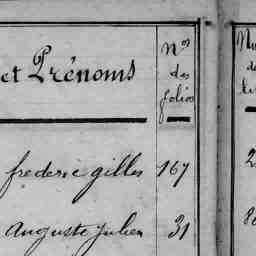 et Prénoms
Nos
des
folios
frederic gilles 167
Auguste Julien 31